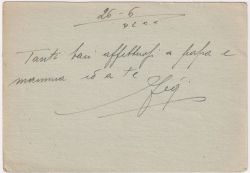 26-6
Tanti baci affettuosi a papà e
mamma ed a te